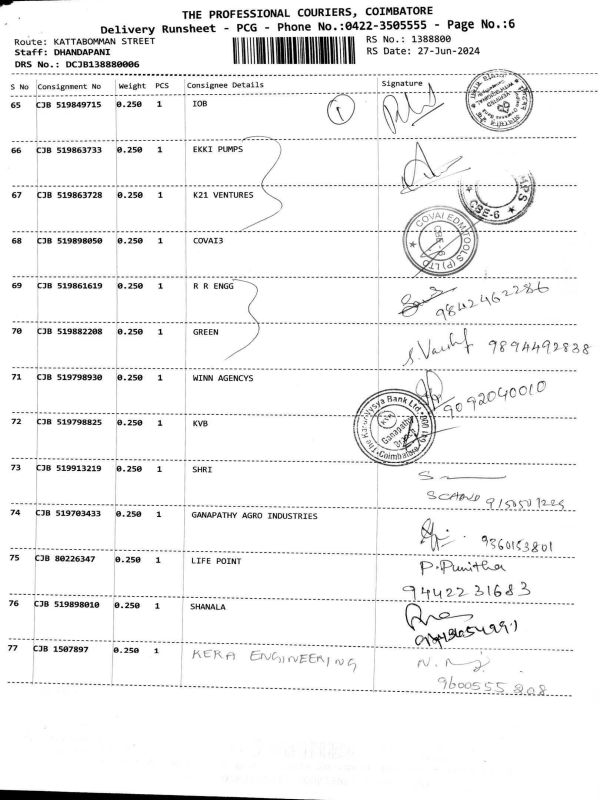 THE PROFESSIONAL COURIERS, COIMBATORE
Delivery Runsheet - PCG - Phone No.:0422-3505555 - Page No.:6
Route: KATTABOMMAN STREET RS No.: 1388800
Staff: DHANDAPANI RS Date: 27-Jun-2024
DRS No.: DCJB138880006
S No Consignment No Weight PCS Consignee Details Signature
65 CJB 519849715 0.250 1 IOB 1
66 CJB 519863733 0.250 1 EKKI PUMPS
67 CJB 519863728 0.250 1 K21 VENTURES
CBE-6
68 CJB 519898050 0.250 1 COVAI3
COVAI EDM TOOLS (P) LTD CBE-6
69 CJB 519861619 0.250 1 R R ENGG
9842462286
70 CJB 519882208 0.250 1 GREEN
9894492838
71 CJB 519798930 0.250 1 WINN AGENCYS
9092040010
72 CJB 519798825 0.250 1 KVB
The Karur Vysya Bank Ltd. KVB Ganapathy Branch Coimbatore
73 CJB 519913219 0.250 1 SHRI
74 CJB 519703433 0.250 1 GANAPATHY AGRO INDUSTRIES
9360153801
75 CJB 80226347 0.250 1 LIFE POINT P. Punitha
9442231683
76 CJB 519898010 0.250 1 SHANALA
77 CJB 1507897 0.250 1 KERA ENGINEERING
9600555208